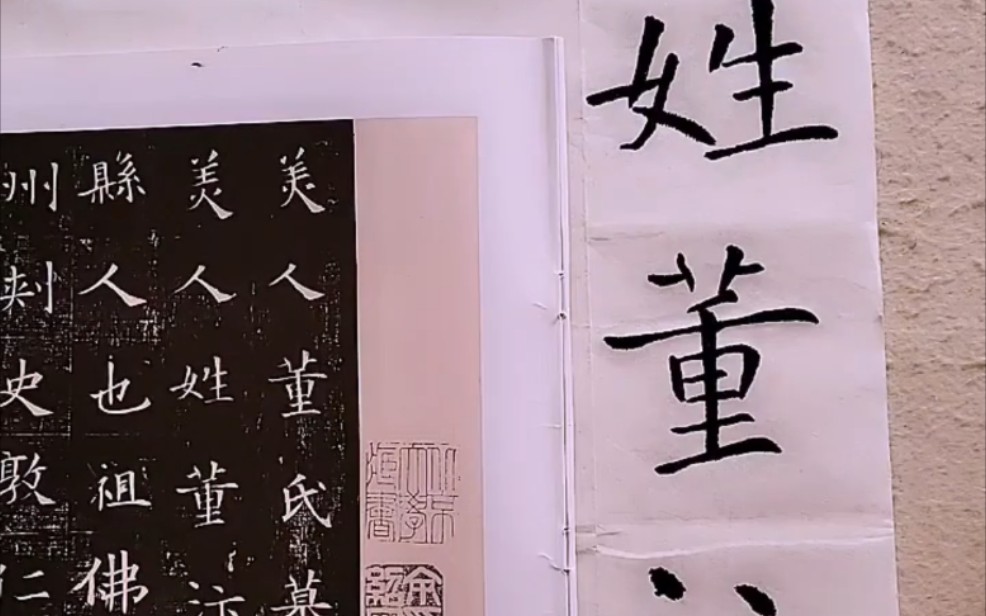 姓董
美人董氏墓
美人姓董汴
縣人也祖佛
州刺史敦仁